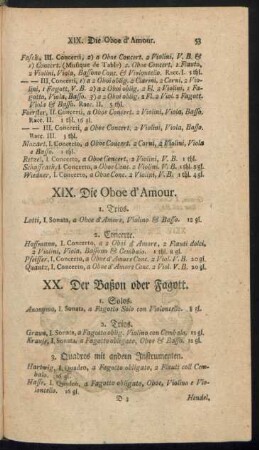 XIX. Die Oboe d'Amour. 53
Fasch, III. Concerti, 1) a Oboe Concert. 2 Violini, V. B. &
1) Concert. (Musique de Table) 2. Oboe Concert, 2 Flauti,
2 Violini, Viola, Bassono Conc. & Violoncello. Racc. I. 1 thl.
— — III. Concerti, 1) a 2 Oboi oblig. 2 Corni, 2 Violi-
ni, 1 Fagott, V. B. 2) a 2 Oboi oblig. 2 Fl. 2 Violini, 1 Fa-
gotto, Viola, Basso. 3) a 2 Oboi oblig. 2 Fl. 2 Viol. 2 Fagott.
Viola & Basso. Racc. II. 3 thl.
Foerster, II. Concerti, a Oboe Concert. 2 Violini, Viola, Basso.
Racc. II. 1 thl. 16 gl.
— — III. Concerti, a Oboe Concert. 2 Violini, Viola, Basso.
Racc. III. 3 thl.
Mozart, I. Concerto, a Oboe Concert. 2 Corni, 2 Violini, Viola
& Basso. 1 thl.
Retzel, I. Concerto, a Oboe Concert. 2 Violini, V. B. 1 thl.
Schaffrath, I. Concerto, a Oboe Conc. 2 Violini, V. B. 1 thl. 4 gl.
Wiedner, I. Concerto, a Oboe Conc. 2 Violini, V. B. 1 thl. 4 gl.
XIX. Die Oboe d'Amour.
1. Trios.
Lotti, I. Sonata, a Oboe d'Amore, Violino & Basso. 12 gl.
2. Concerte.
Hoffmann, I. Concerto, a 2 Oboi d'Amore, 2 Flauti dolci,
2 Violini, Viola, Bassono & Cembalo. 1 thl. 8 gl.
Pfeiffer, I. Concerto, a Oboe d'Amore Conc. 2 Viol. V. B. 20 gl.
Quantz, I. Concerto, a Oboe d'Amore Conc. 2 Viol. V. B. 20 gl.
XX. Der Baßon oder Fagott.
1. Solos.
Anonymo, I. Sonata, a Fagotto Solo con Violoncello. 8 gl.
2. Trios.
Graun, I. Sonata, a Fagotto oblig. Violino con Cembalo. 12 gl.
Krause, I. Sonata, a Fagotto obligato, Oboe & Basso. 12 gl.
3. Quadros mit andern Instrumenten.
Hartwig, I. Quadro, a Fagotto obligato, 2 Flauti coll Cem-
balo. 16 gl.
Hasse, I. Quadro, a Fagotto obligato, Oboe, Violino e Vio-
loncello. 16 gl.
D 3 Hendel,